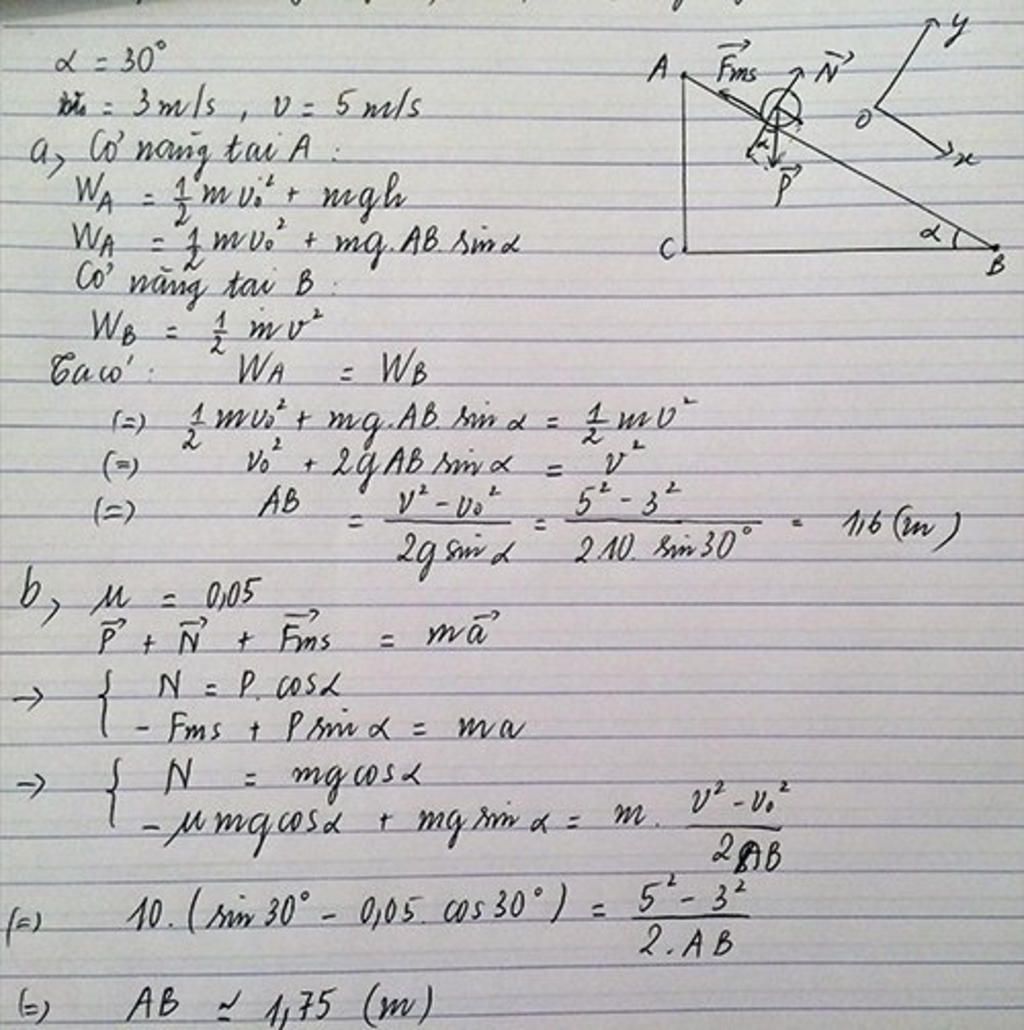 α = 30°
= 3 m/s , v = 5 m/s
a, Cơ năng tại A :
W_A = 1/2 m v₀² + mgh
W_A = 1/2 mv₀² + mg.AB.sin α
Cơ năng tại B :
W_B = 1/2 mv²
Ta có : W_A = W_B
(=) 1/2 mv₀² + mg.AB.sin α = 1/2 mv²
(=) v₀² + 2gABsin α = v²
(=) AB = (v² - v₀²)/(2g sin α) = (5² - 3²)/(2.10.sin30°) = 1,6 (m)
b, μ = 0,05
P⃗ + N⃗ + F⃗ms = ma⃗
→ { N = P.cosα
- Fms + P sin α = ma
→ { N = mgcosα
- μmgcosα + mg sin α = m. (v² - v₀²)/(2AB)
(=) 10.(sin30° - 0,05.cos30°) = (5² - 3²)/(2.AB)
(=) AB ≃ 1,75 (m)
A F⃗ms N⃗ y
O x
α P⃗
C α B